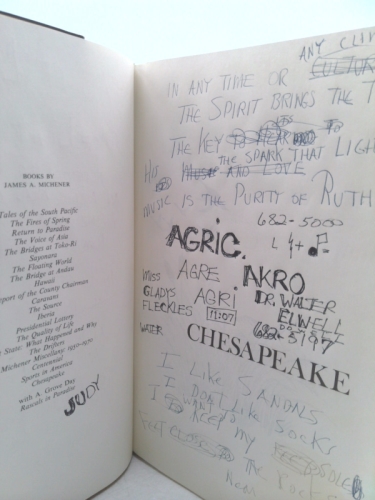 BOOKS BY
JAMES A. MICHENER
Tales of the South Pacific
The Fires of Spring
Return to Paradise
The Voice of Asia
The Bridges at Toko-Ri
Sayonara
The Floating World
The Bridge at Andau
Hawaii
Report of the County Chairman
Caravans
The Source
Iberia
Presidential Lottery
The Quality of Life
State: What Happened and Why
The Drifters
Michener Miscellany: 1950-1970
Centennial
Sports in America
Chesapeake
with A. Grove Day
Rascals in Paradise
JUDY
ANY CLIM
CULTUR
IN ANY TIME OR
THE SPIRIT BRINGS THE T
THE KEY TO
THE SPARK THAT LIGH
HOT MUSIC AND LOVE
MUSIC IS THE PURITY OF RUTH
682-5000
AGRIC.
L 4+
MISS AGRE AKRO
GLADYS AGRI DR. WALTER
FLECKLES 11:07 ELWELL
682-5197
WATER CHESAPEAKE
I LIKE SANDALS
I DON'T LIKE SOCKS
I WANT TO KEEP MY
CLOSE THE